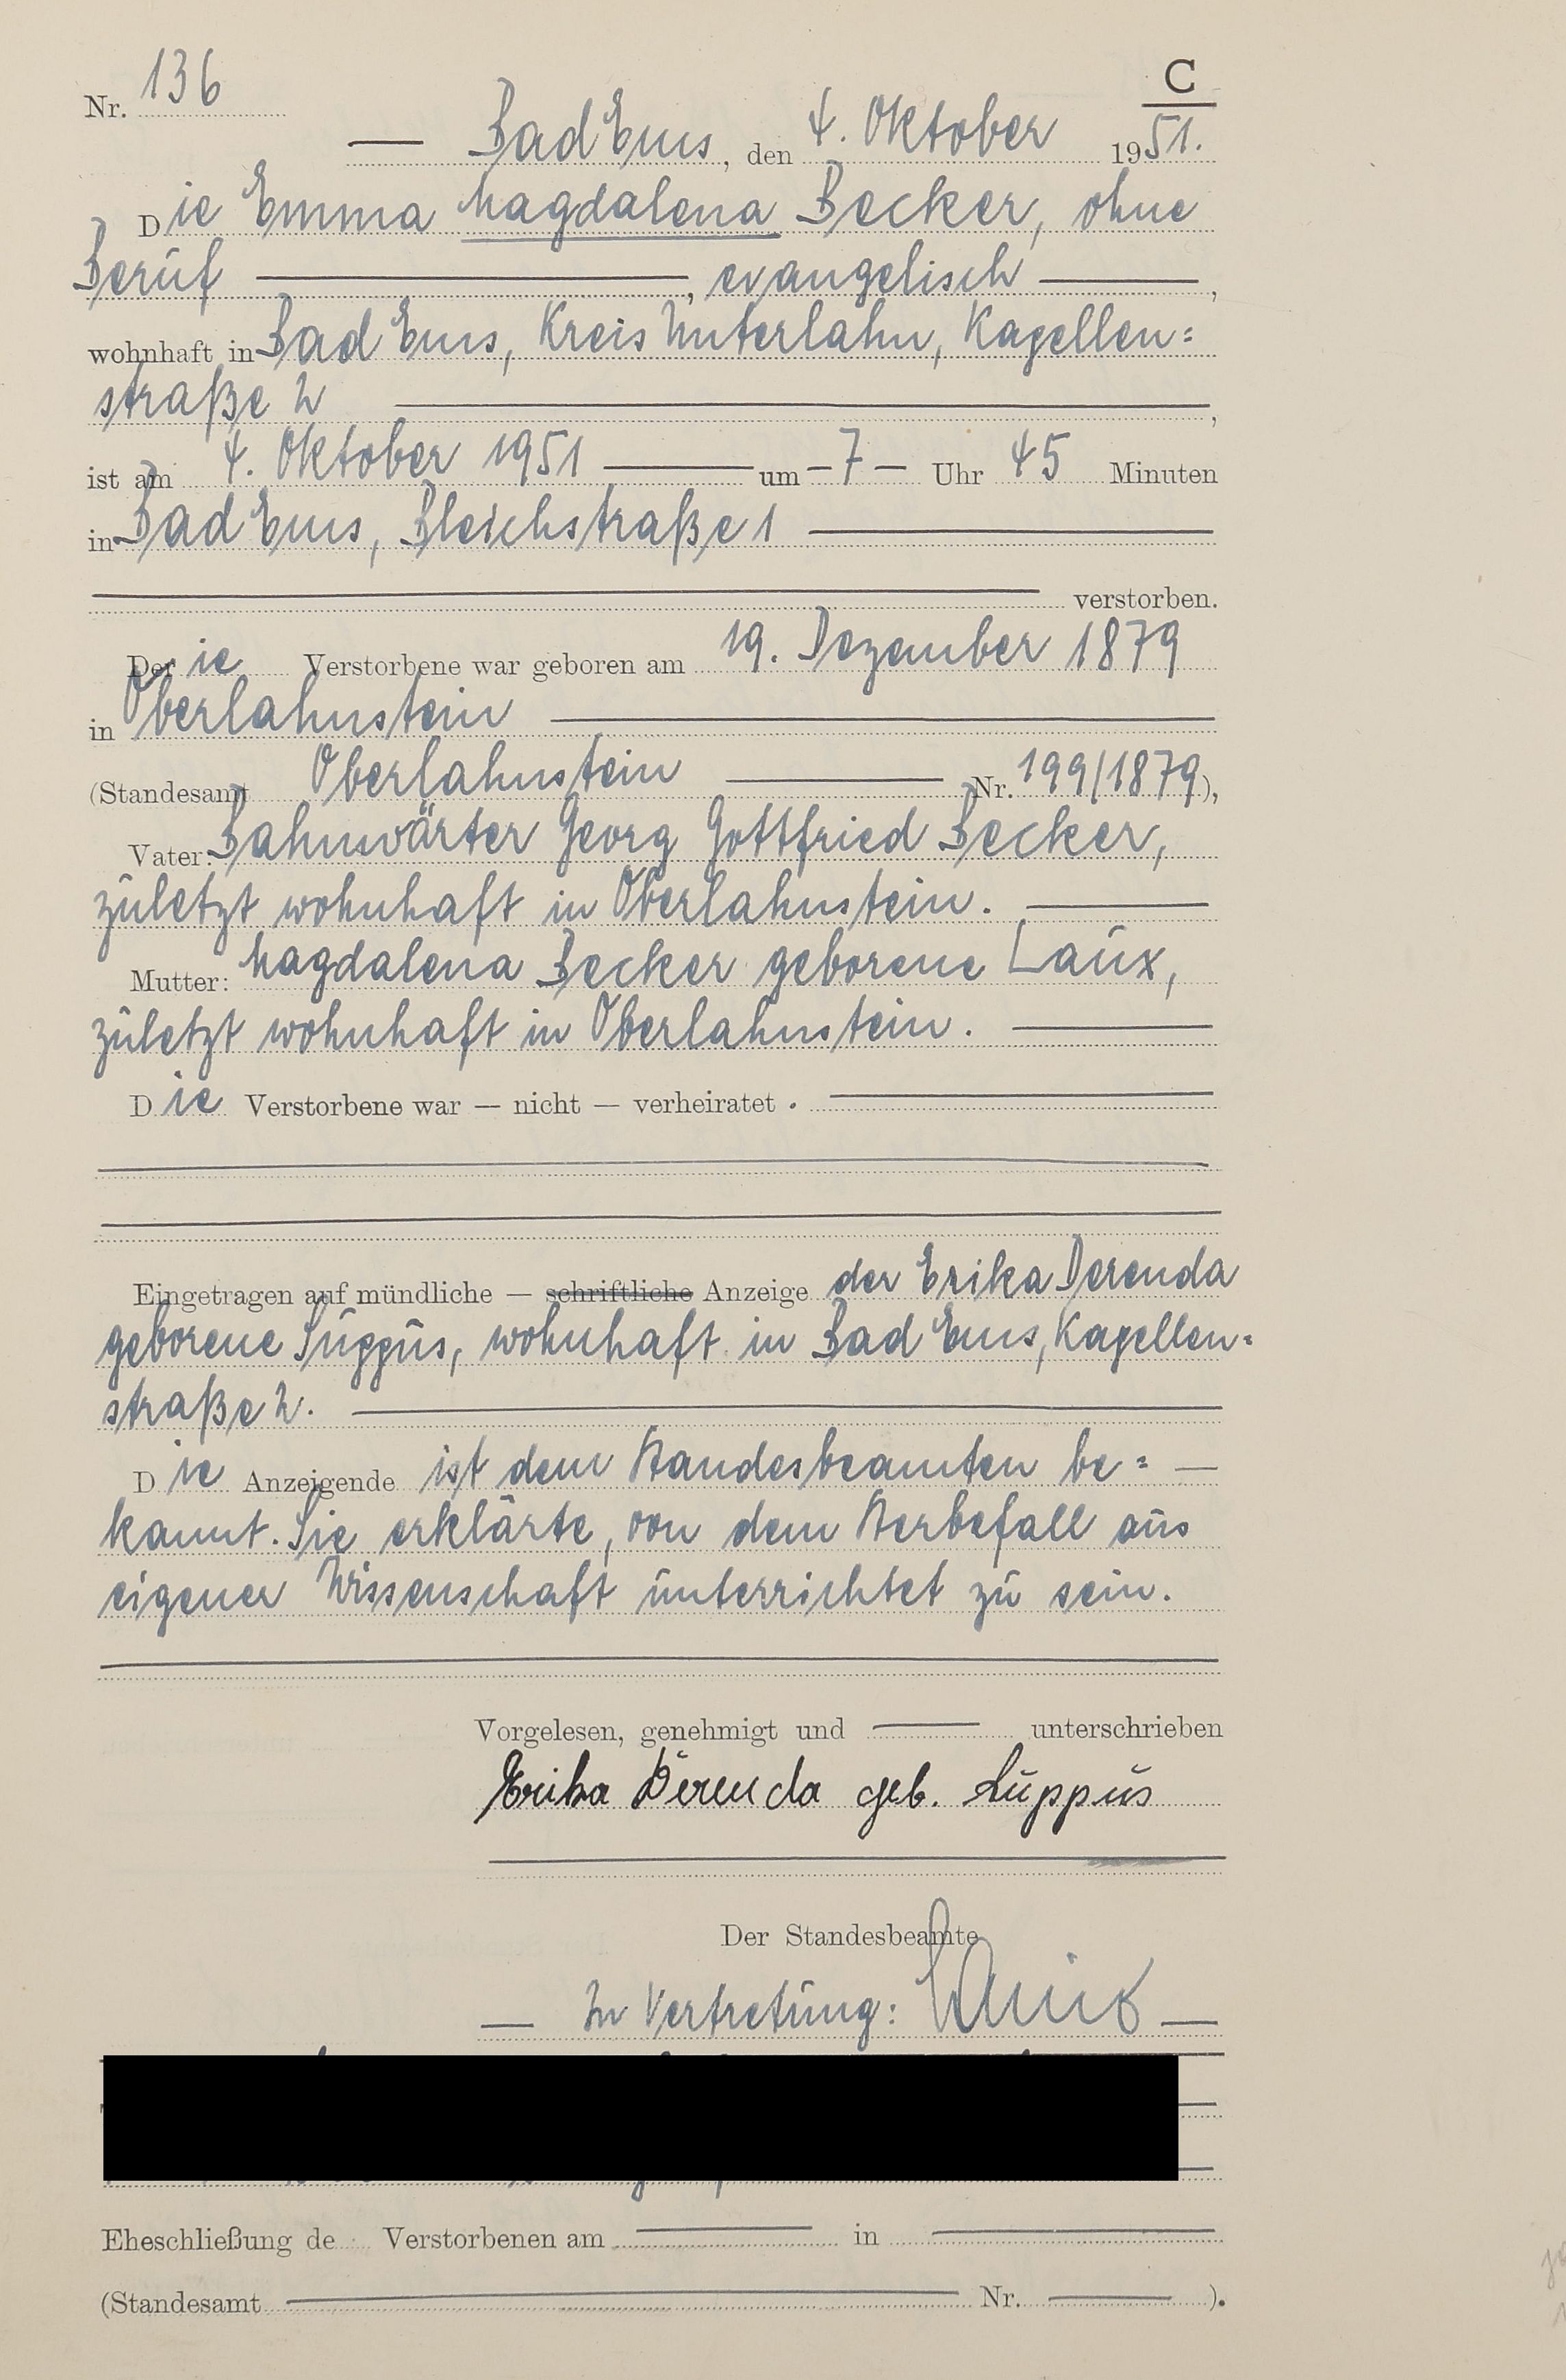 Nr. 136
C
— Bad Ems, den 4. Oktober 1951.
Die Emma Magdalena Becker, ohne
Beruf —, evangelisch —,
wohnhaft in Bad Ems, Kreis Unterlahn, Kapellen=
straße 2 —,
ist am 4. Oktober 1951 — um — 7 — Uhr 45 Minuten
in Bad Ems, Bleichstraße 1 —
— verstorben.
Der ie Verstorbene war geboren am 19. Dezember 1879
in Oberlahnstein —
(Standesamt Oberlahnstein — Nr. 199/1879),
Vater: Bahnwärter Georg Gottfried Becker,
zuletzt wohnhaft in Oberlahnstein. —
Mutter: Magdalena Becker geborene Laux,
zuletzt wohnhaft in Oberlahnstein. —
Die Verstorbene war — nicht — verheiratet. —
Eingetragen auf mündliche — schriftliche Anzeige der Erika Derenda
geborene Suppus, wohnhaft in Bad Ems, Kapellen=
straße 2. —
Die Anzeigende ist dem Standesbeamten be= —
kannt. Sie erklärte, von dem Sterbefall aus
eigener Wissenschaft unterrichtet zu sein.
Vorgelesen, genehmigt und — unterschrieben
Erika Derenda geb. Suppus
Der Standesbeamte
— In Vertretung: —
Eheschließung de Verstorbenen am — in —
(Standesamt — Nr. — ).